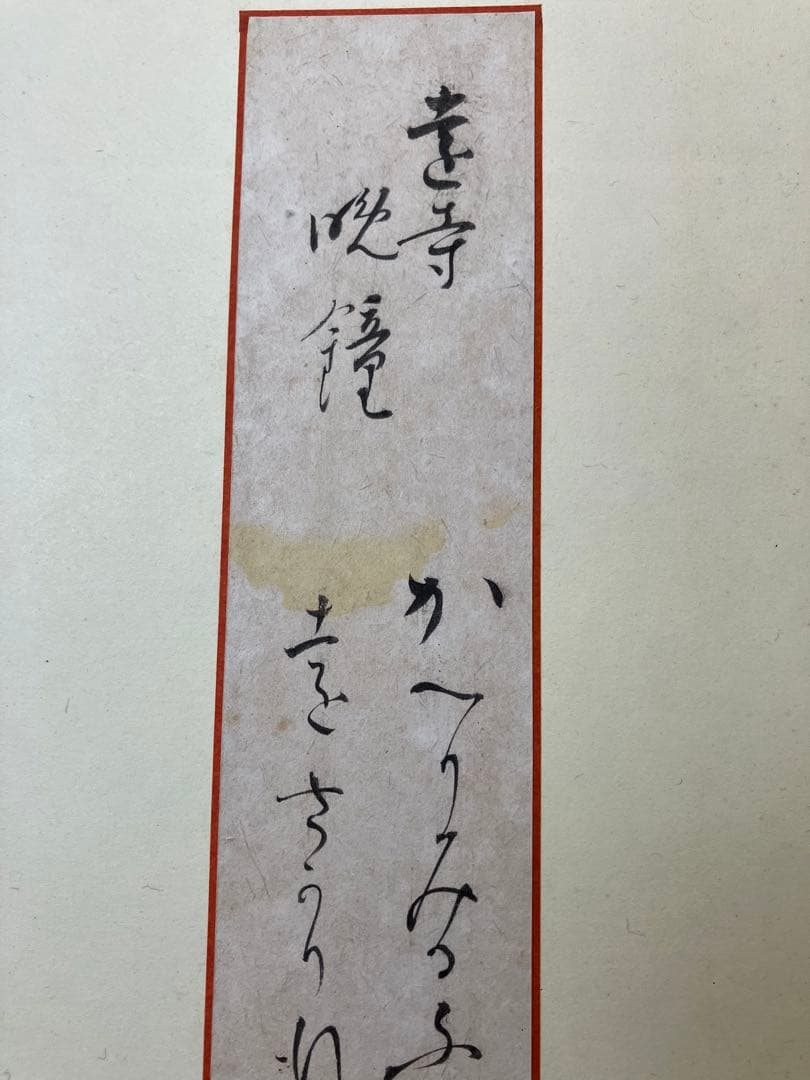 遠寺
晩鐘
かへりみる
遠さかり